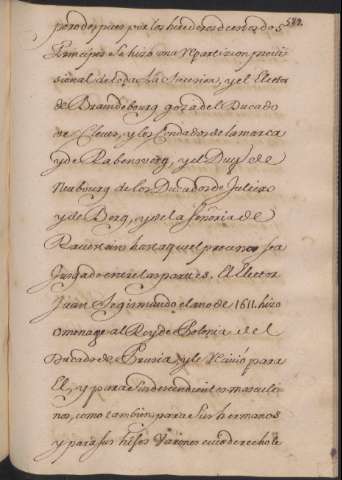 582.
pero despues que los herederos de estos dos
Principes se hizo una repartizion provi
sional de toda la succesion, y el Elector
de Brandebourg goza del Ducado
de Cleves, y los Condados de la marca
y de Rabensverg, y el Duq de
Neubourg de los Ducados de Juliers
y de Berg, y de la señoria de
Ravestain hasta que el proceso sea
Juzgado entre las partes. El Elector
Juan Segismundo el año de 1611. hizo
omenage al Rey de Polonia del
Ducado de Prusia y le reciuió para
El, y para sus descendientes masculi
nos, como tambien para sus hermanos
y para sus hijos varones cuio derecho le